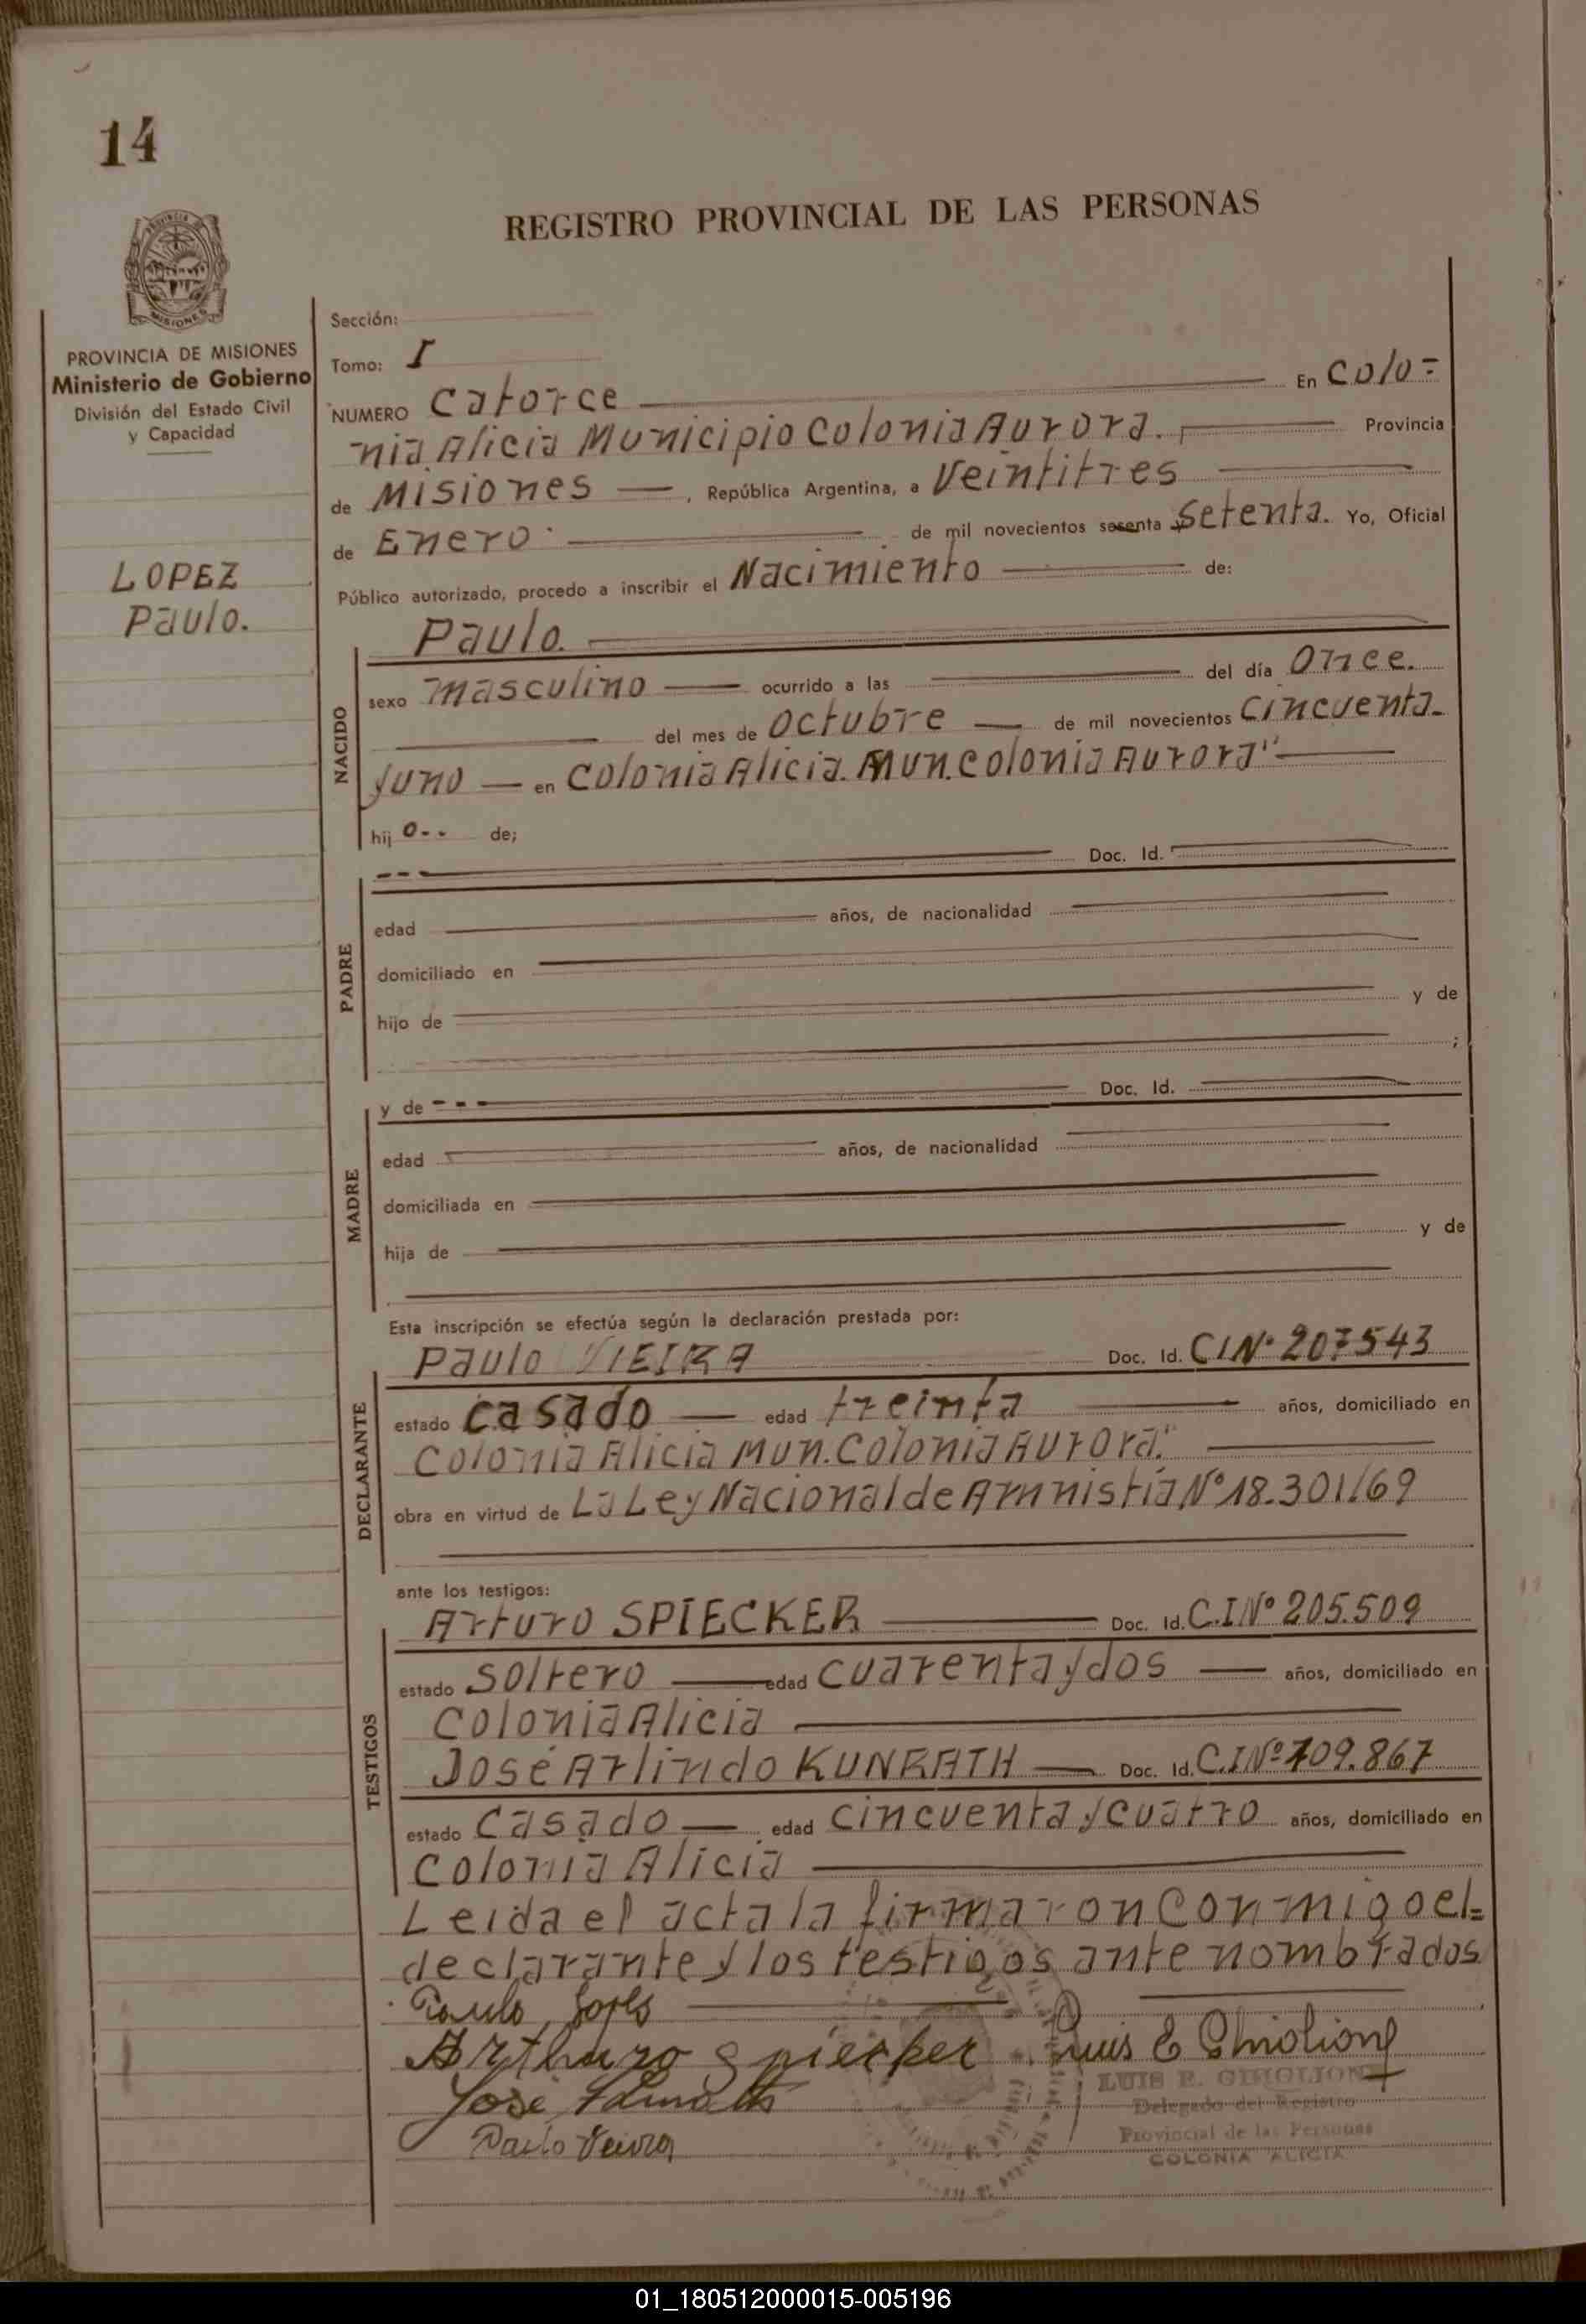 14
REGISTRO PROVINCIAL DE LAS PERSONAS
PROVINCIA
MISIONES
PROVINCIA DE MISIONES
Ministerio de Gobierno
División del Estado Civil
y Capacidad
LOPEZ
Paulo.
Sección:
Tomo: I
NUMERO Catorce En Colo=
nia Alicia Municipio Colonia Aurora. Provincia
de Misiones, República Argentina, a Veintitres
de Enero de mil novecientos sesenta y Setenta. Yo, Oficial
Público autorizado, procedo a inscribir el Nacimiento de:
NACIDO
Paulo.
sexo masculino ocurrido a las del día Once.
del mes de Octubre de mil novecientos Cincuenta
y uno en Colonia Alicia. Mun. Colonia Aurora"
hij o-- de;
PADRE
--- Doc. Id.
edad años, de nacionalidad
domiciliado en
hijo de y de
;
MADRE
y de --- Doc. Id.
edad años, de nacionalidad
domiciliada en
hija de y de
Esta inscripción se efectúa según la declaración prestada por:
DECLARANTE
Paulo VIEIRA Doc. Id. CIN° 207543
estado casado edad treinta años, domiciliado en
Colonia Alicia Mun. Colonia Aurora."
obra en virtud de La Ley Nacional de Amnistía N° 18.301/69
ante los testigos:
TESTIGOS
Arturo SPIECKER Doc. Id. C.I N° 205.509
estado soltero edad cuarenta y dos años, domiciliado en
Colonia Alicia
José Arlindo KUNRATH Doc. Id. C.I N° 709.867
estado Casado edad cincuenta y cuatro años, domiciliado en
Colonia Alicia
Leida el acta la firmaron conmigo el=
declarante y los testigos ante nombrados
Paulo Lopes
Arthuro Spiecker Luis E Ghiolione
LUIS E. GHIOLIONE
José Kunrath
Delegado del Registro
Provincial de las Personas
Paulo Vieira
COLONIA ALICIA
01_180512000015-005196